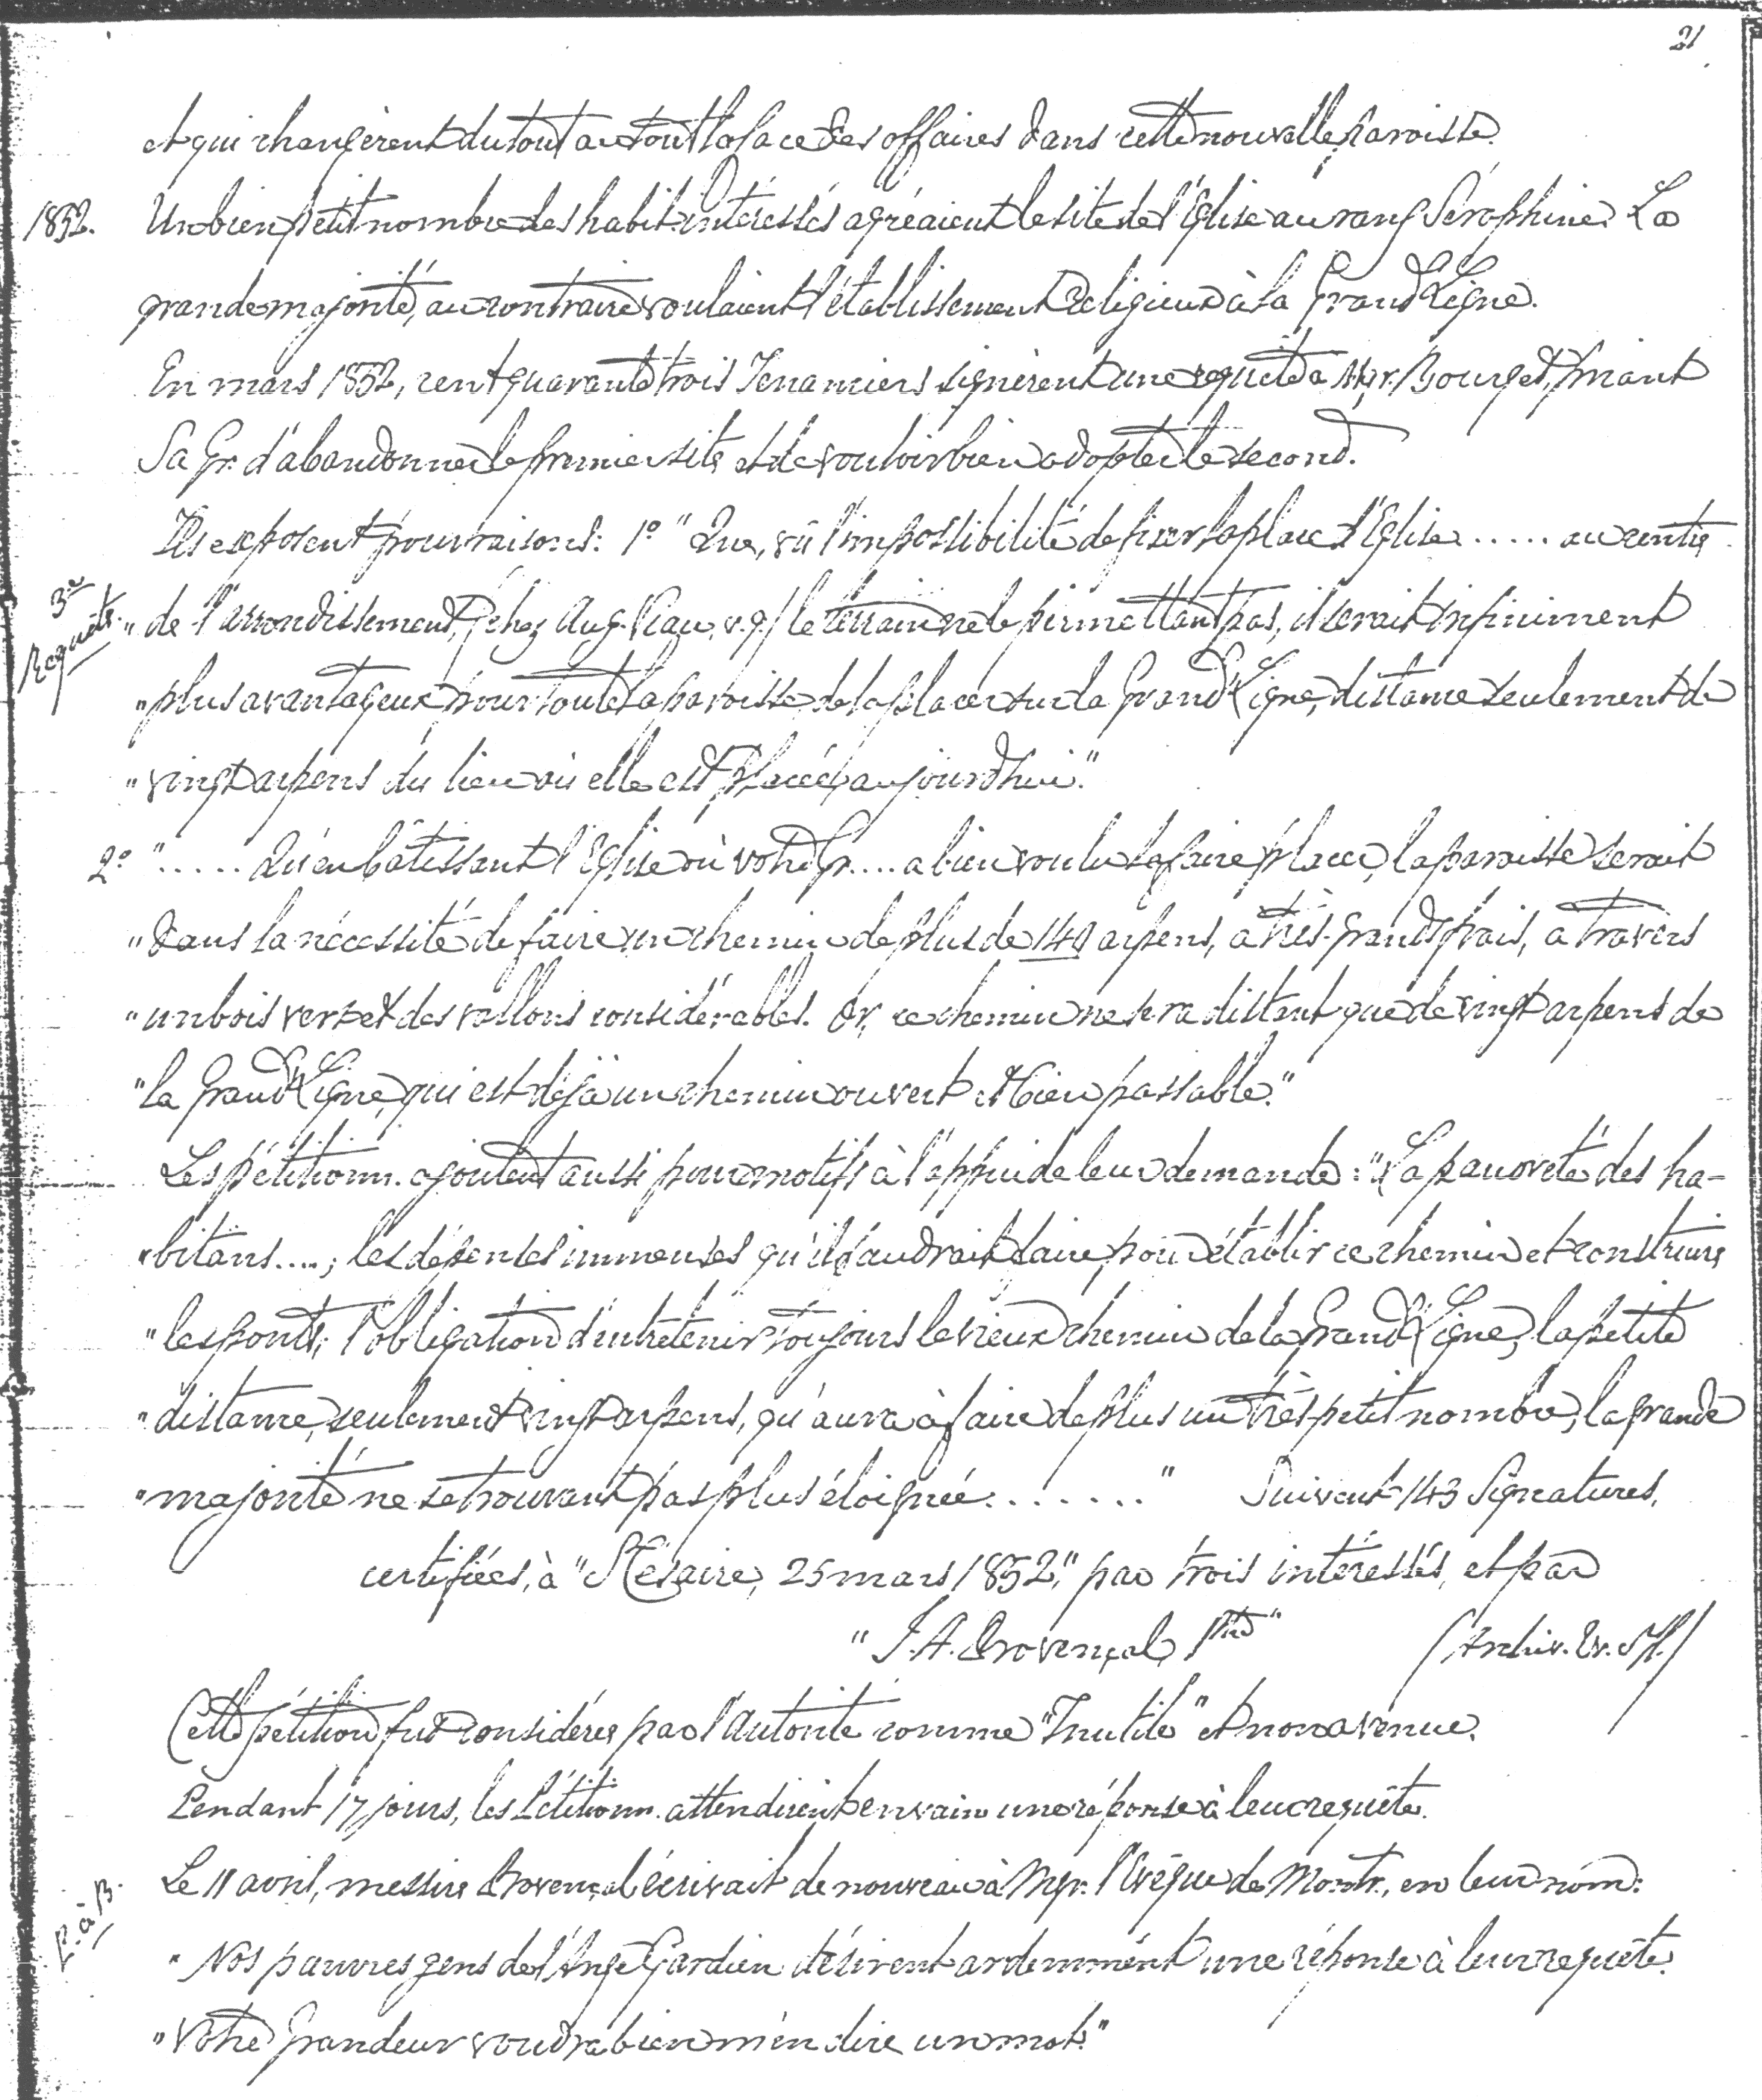 21
et qui changèrent du tout au tout la face des affaires dans cette nouvelle Paroisse.
1852. Un bien petit nombre des habit. intéressés agréaient le site de l'Eglise au rang Séraphine. La
grande majorité, au contraire voulaient l'établissement Religieux à la Grand'Ligne.
En mars 1852, cent quarante trois Tenanciers signèrent une requête à Mgr. Bourget, priant
Sa Gr. d'abandonner le premier site et de vouloir bien adopter le second.
Ils exposent pour raisons: 1º "Que, vû l'impossibilité de fixer la place d'Eglise ..... au centre
3e Requête. "de l'arrondissement, (chez Aug. Viau, v.g.) le terrain ne le permettant pas, il serait infiniment
"plus avantageux pour toute la paroisse, de la placer sur la Grand'Ligne, distance seulement de
"vingt arpens du lieu où elle est placée aujourd'hui."
2º "..... Qu'en bâtissant l'Eglise où votre Gr.... a bien voulu la faire placer, la paroisse serait
"dans la nécessité de faire un chemin de plus de 140 arpens, à très-grands frais, à travers
"un bois verd et des vallons considérables. Or, ce chemin ne sera distant que de vingt arpens de
"la Grand'Ligne, qui est déjà un chemin ouvert et bien passable."
Les pétitionn. ajoutent aussi pour motifs à l'appui de leur demande: "La pauvreté des ha-
"bitans....; les dépenses immenses qu'il faudrait faire pour établir ce chemin et construire
"les ponts; l'obligation d'entretenir toujours le vieux chemin de la Grand'Ligne; la petite
"distance, seulement vingt arpens, qu'aura à faire de plus un très petit nombre, la grande
"majorité ne se trouvant pas plus éloignée......." Suivent 143 Signatures,
certifiées, à "St Césaire, 25 mars 1852," par trois intéressés, et par
"J. A. Provençal, Ptre" (Archiv. Ev. St H.)
Cette pétition fut considérée par l'autorité comme "Inutile" et non avenue.
Pendant 17 jours, les Pétitionn. attendirent en vain une réponse à leur requête.
P. à B. Le 11 avril, messire Provençal écrivait de nouveau à Mgr. l'Evêque de Montr., en leur nom:
"Nos pauvres gens de l'Ange Gardien désirent ardemment une réponse à leur requête.
"Votre Grandeur voudra bien m'en dire un mot."